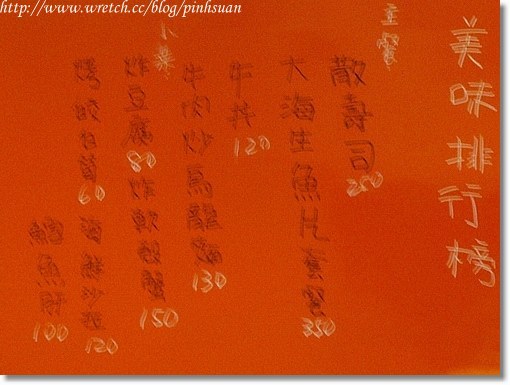 http://www.wretch.cc/blog/pinhsuan
美味排行榜
主餐
散壽司
250
大海生魚片套餐
350
牛丼
120
牛肉炒烏龍麵
130
小菜
炸豆腐
80
炸軟殼蟹
150
烤 白 
60
海鮮沙拉
120
魚肝
100